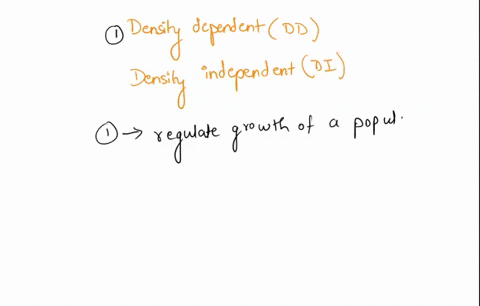 ① Density dependent (DD)
Density independent (DI)
① → regulate growth of a popul.